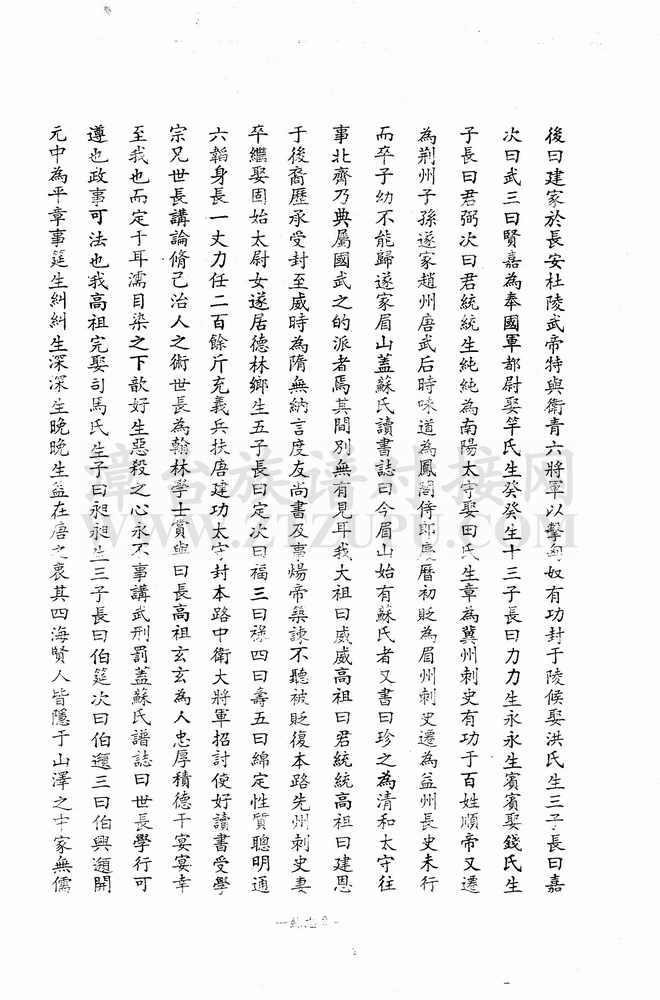 後曰建家於長安杜陵武帝特與衛青六將軍以擊匈奴有功封于陵候娶洪氏生三子長曰嘉
次曰武三曰賢嘉為奉國軍都尉娶竿氏生癸癸生十三子長曰力力生永永生賓賓娶錢氏生
子長曰君弼次曰君統統生純純為南陽太守娶田氏生章為冀州刺史有功于百姓順帝又遷
為荆州子孫遂家趙州唐武后時味道為鳳閣侍郎慶曆初貶為眉州刺史遷為益州長史未行
而卒子幼不能歸遂家眉山蓋蘇氏讀書誌曰今眉山始有蘇氏者又書曰珍之為清和太守往
事北齊乃典屬國武之的派者焉其間別無有見耳我大祖曰威威高祖曰君統統高祖曰建恩
于後裔歷承受封至威時為隋無納言度友尚書及事煬帝築諫不聽被貶復本路先州刺史妻
卒繼娶固始太尉女遂居德林鄉生五子長曰定次曰福三曰祿四曰壽五曰綿定性質聰明通
六韜身長一丈力任二百餘斤充義兵扶唐建功太守封本路中衛大將軍招討使好讀書受學
宗兄世長講論脩己治人之術世長為翰林學士賞與曰長高祖玄玄為人忠厚積德干宴宴幸
至我也而定于耳濡目染之下歆好生惡殺之心永不事講武刑罰蓋蘇氏譜誌曰世長學行可
遵也政事可法也我高祖完娶司馬氏生子曰昶昶生三子長曰伯筵次曰伯邇三曰伯興邇開
元中為平章事筵生糾糾生深深生晚晚生益在唐之衰其四海賢人皆隱于山澤之中家無儒
韋台族谱对接网
WWW.ZTZUPU.COM